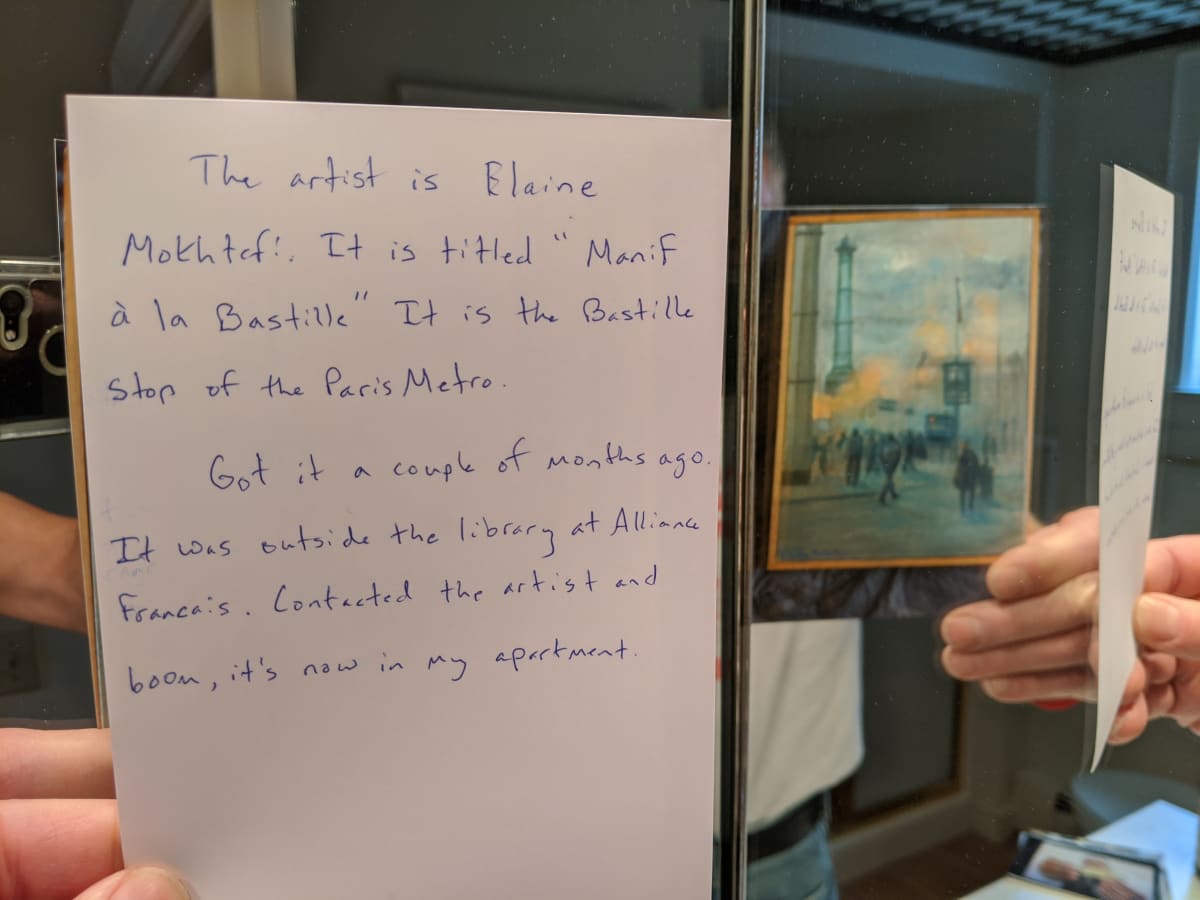 The artist is Elaine
Mokhtefi. It is titled "Manif
à la Bastille" It is the Bastille
stop of the Paris Metro.
Got it a couple of months ago.
It was outside the library at Alliance
Francais. Contacted the artist and
boom, it's now in my apartment.